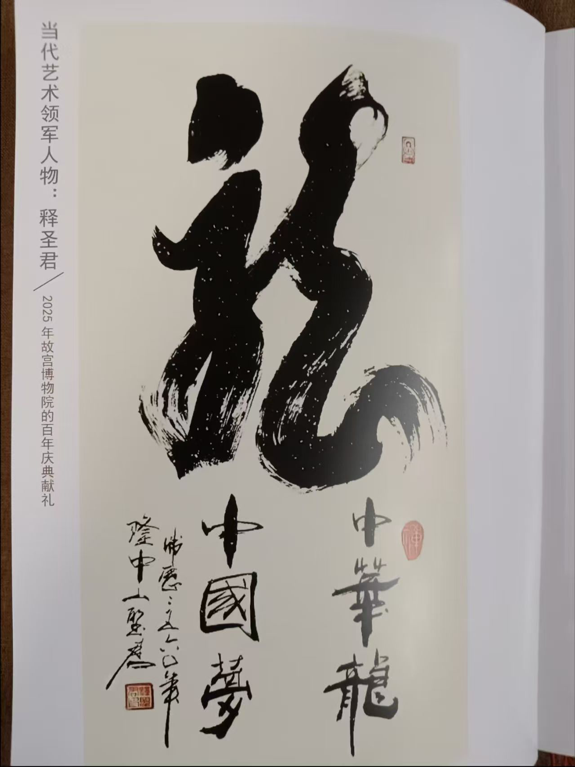 当代艺术领军人物：释圣君／2025年故宫博物院的百年庆典献礼
龍
中華龍
中國夢
佛歷二五六〇年
隆中山